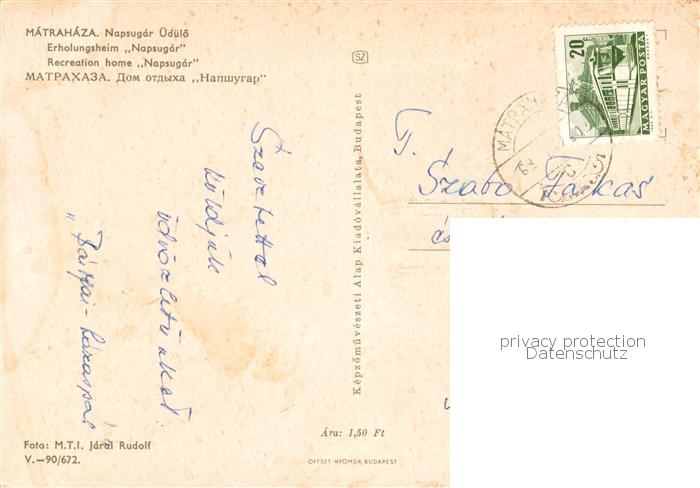 MÁTRAHÁZA. Napsugár Üdülő
Erholungsheim ,,Napsugár"
Recreation home ,,Napsugár"
МАТРАХАЗА. Дом отдыха ,,Напшугар"
SZ
20 f
MAGYAR POSTA
MÁTRAHÁZA
Szeretettel
küldjük
üdvözletünket:
Képzőművészeti Alap Kiadóvállalata, Budapest
T.
Szabó Farkas
és
privacy protection
Datenschutz
Foto: M.T.I. Járai Rudolf
V.—90/672.
Ára: 1,50 Ft
OFFSET-NYOMDA, BUDAPEST